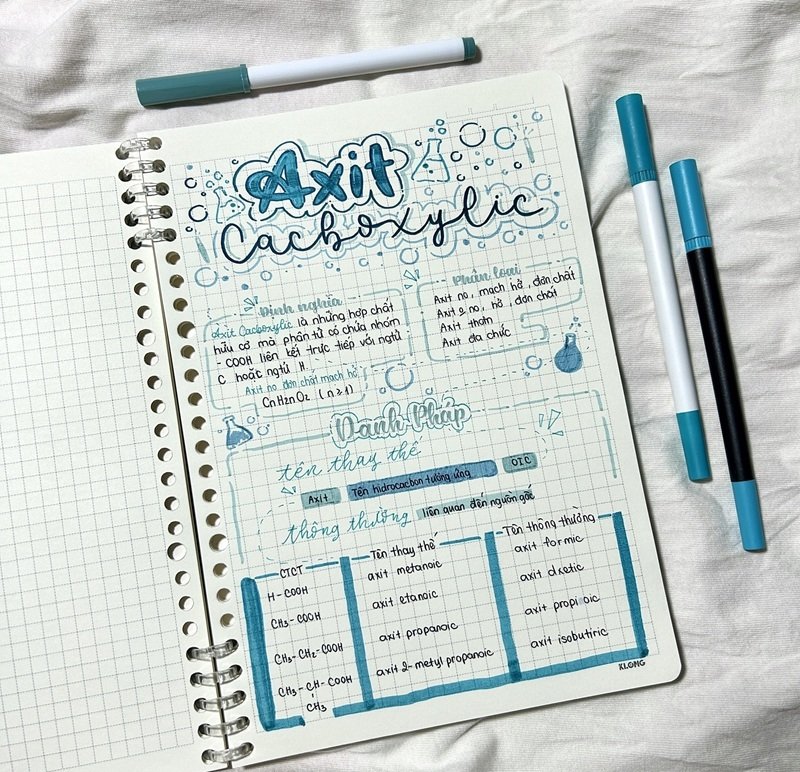 Axit
Cacboxylic
Định nghĩa
Axit Cacboxylic là những hợp chất
hữu cơ mà phân tử có chứa nhóm
- COOH liên kết trực tiếp với ngtử
C hoặc ngtử H
Axit no đơn chất mạch hở
CnH2nO2 (n≥1)
Phân loại
Axit no, mạch hở, đơn chất
Axit k no, hở, đơn chất
Axit thơm
Axit đa chức
Danh Pháp
tên thay thế
Axit Tên hidrocacbon tương ứng OIC
thông thường liên quan đến nguồn gốc
CTCT Tên thay thế Tên thông thường
H-COOH axit metanoic axit formic
CH3-COOH axit etanoic axit axetic
CH3-CH2-COOH axit propanoic axit propinoic
CH3-CH-COOH axit 2-metyl propanoic axit isobutiric
CH3
KLONG